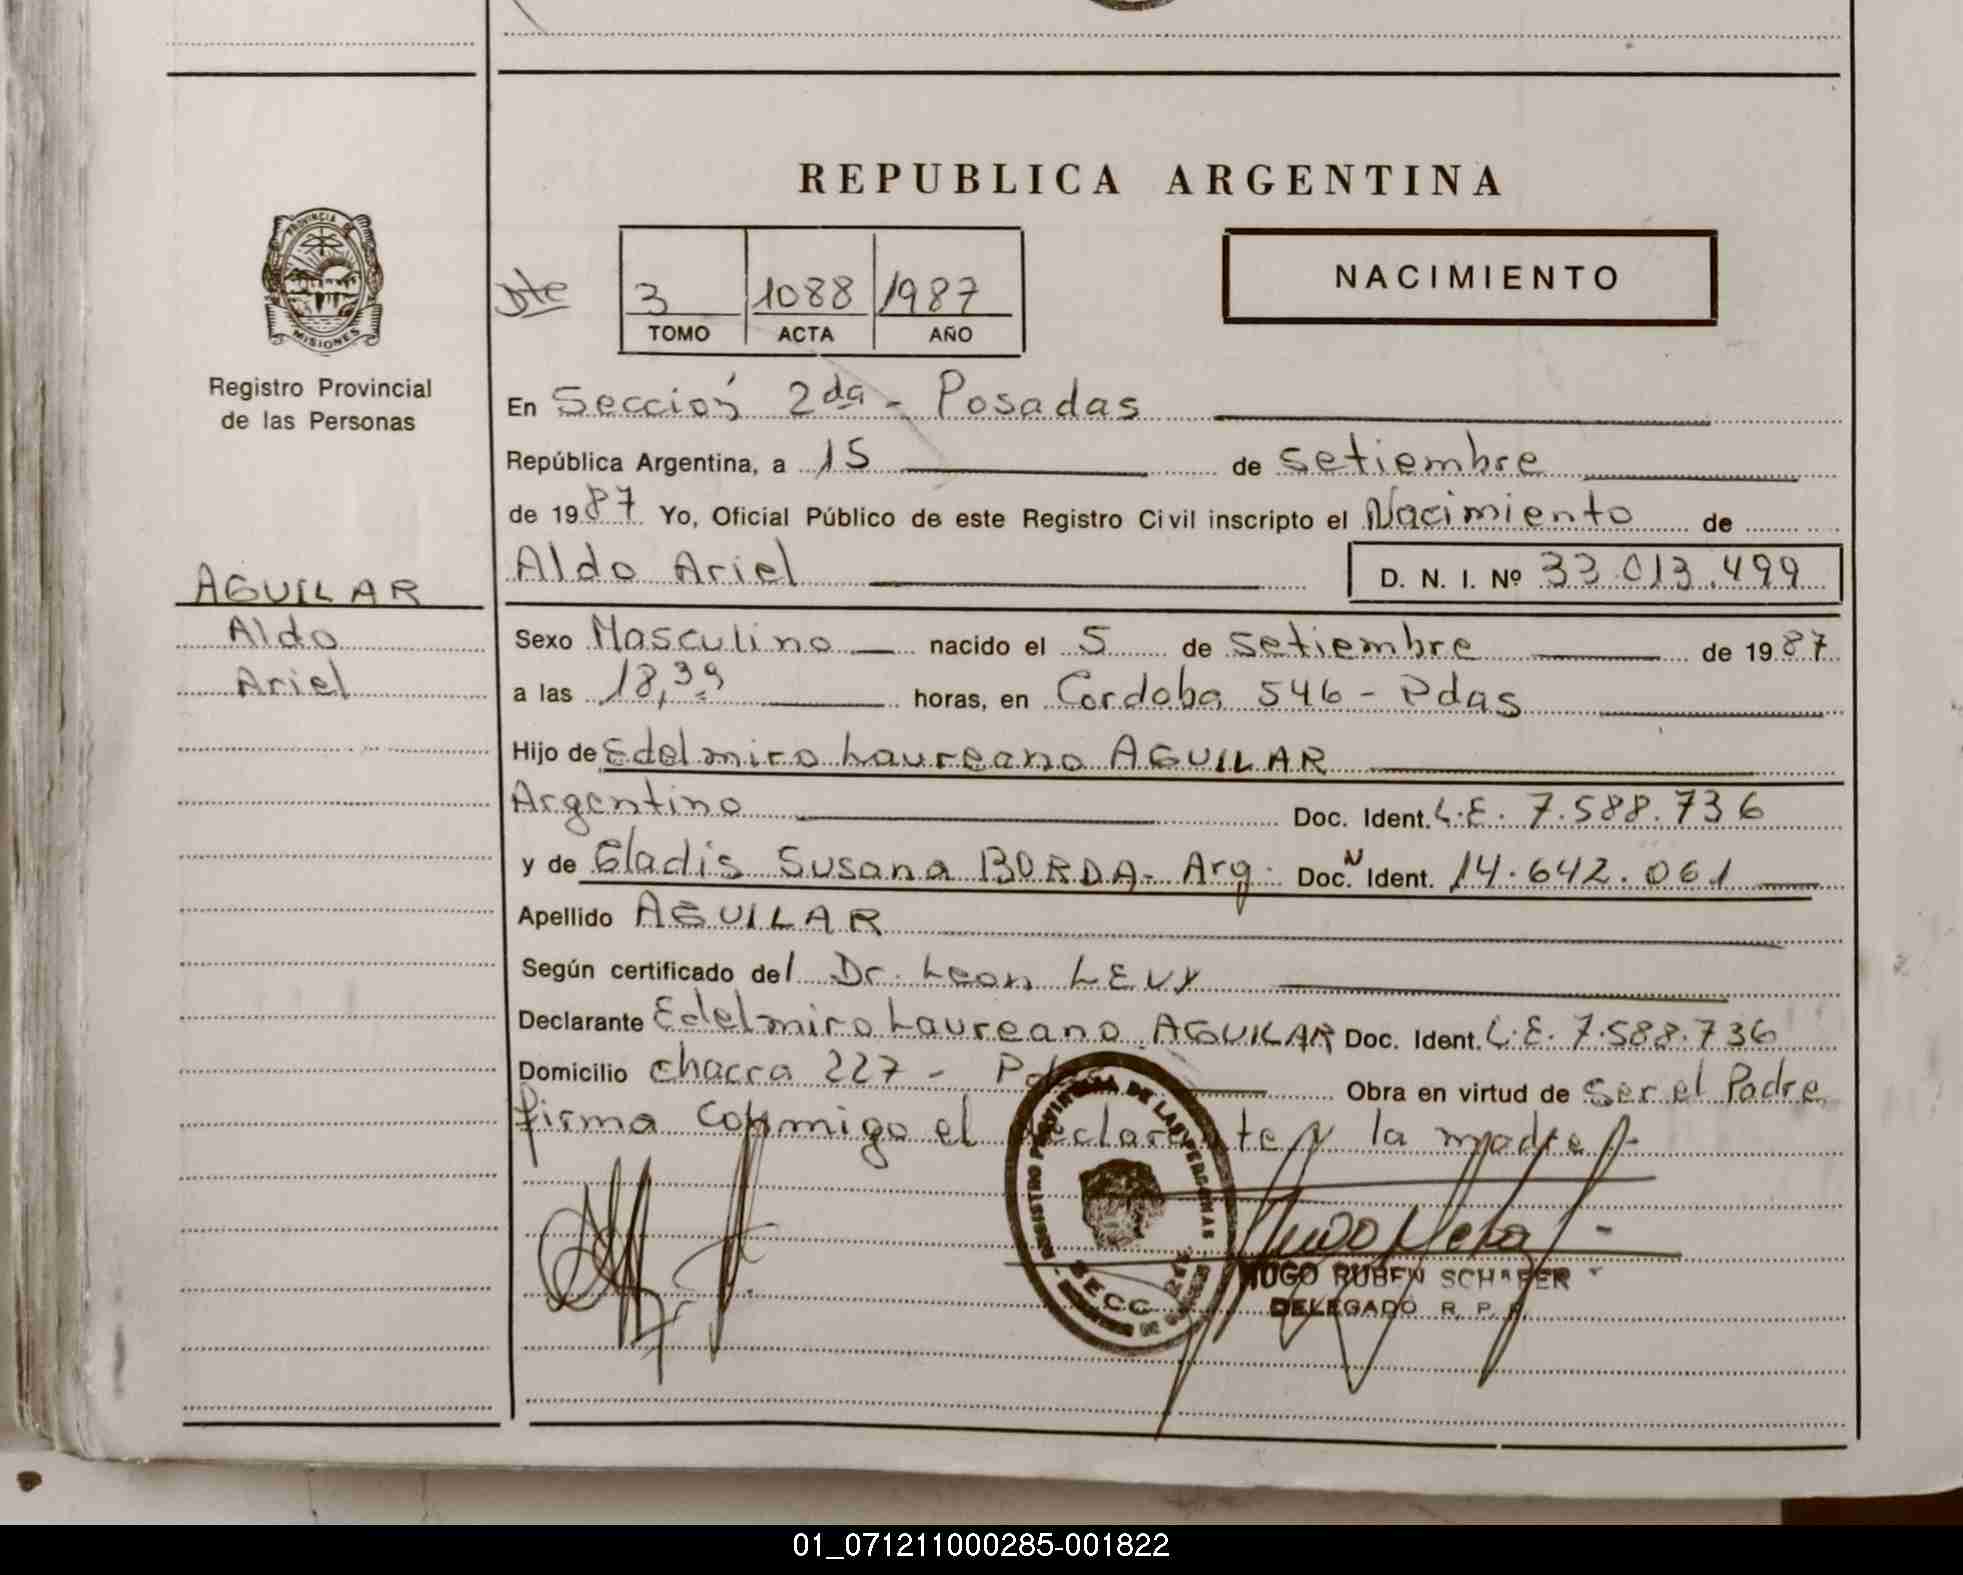 REPUBLICA ARGENTINA
PROVINCIA
MISIONES
Registro Provincial
de las Personas
Dte
3 1088 1987
TOMO ACTA AÑO
NACIMIENTO
En Sección 2da - Posadas
República Argentina, a 15 de Setiembre
de 1987 Yo, Oficial Público de este Registro Civil inscripto el Nacimiento de
Aldo Ariel D. N. I. Nº 33.013.499
AGUILAR
Aldo
Ariel
Sexo Masculino nacido el 5 de Setiembre de 1987
a las 18,39 horas, en Cordoba 546 - Pdas
Hijo de Edelmiro Laureano AGUILAR
Argentino Doc. Ident. L.E. 7.588.736
y de Gladis Susana BORDA - Arg. Doc. N Ident. 14.642.061
Apellido AGUILAR
Según certificado del Dr. Leon LEVY
Declarante Edelmiro Laureano AGUILAR Doc. Ident. L.E. 7.588.736
Domicilio chacra 227 - Obra en virtud de Ser el Padre
firma conmigo el Declarante y la madre
REGISTRO PROVINCIAL DE LAS PERSONAS
SECC
HUGO RUBEN SCHAFER
DELEGADO R. P. P.
01_071211000285-001822